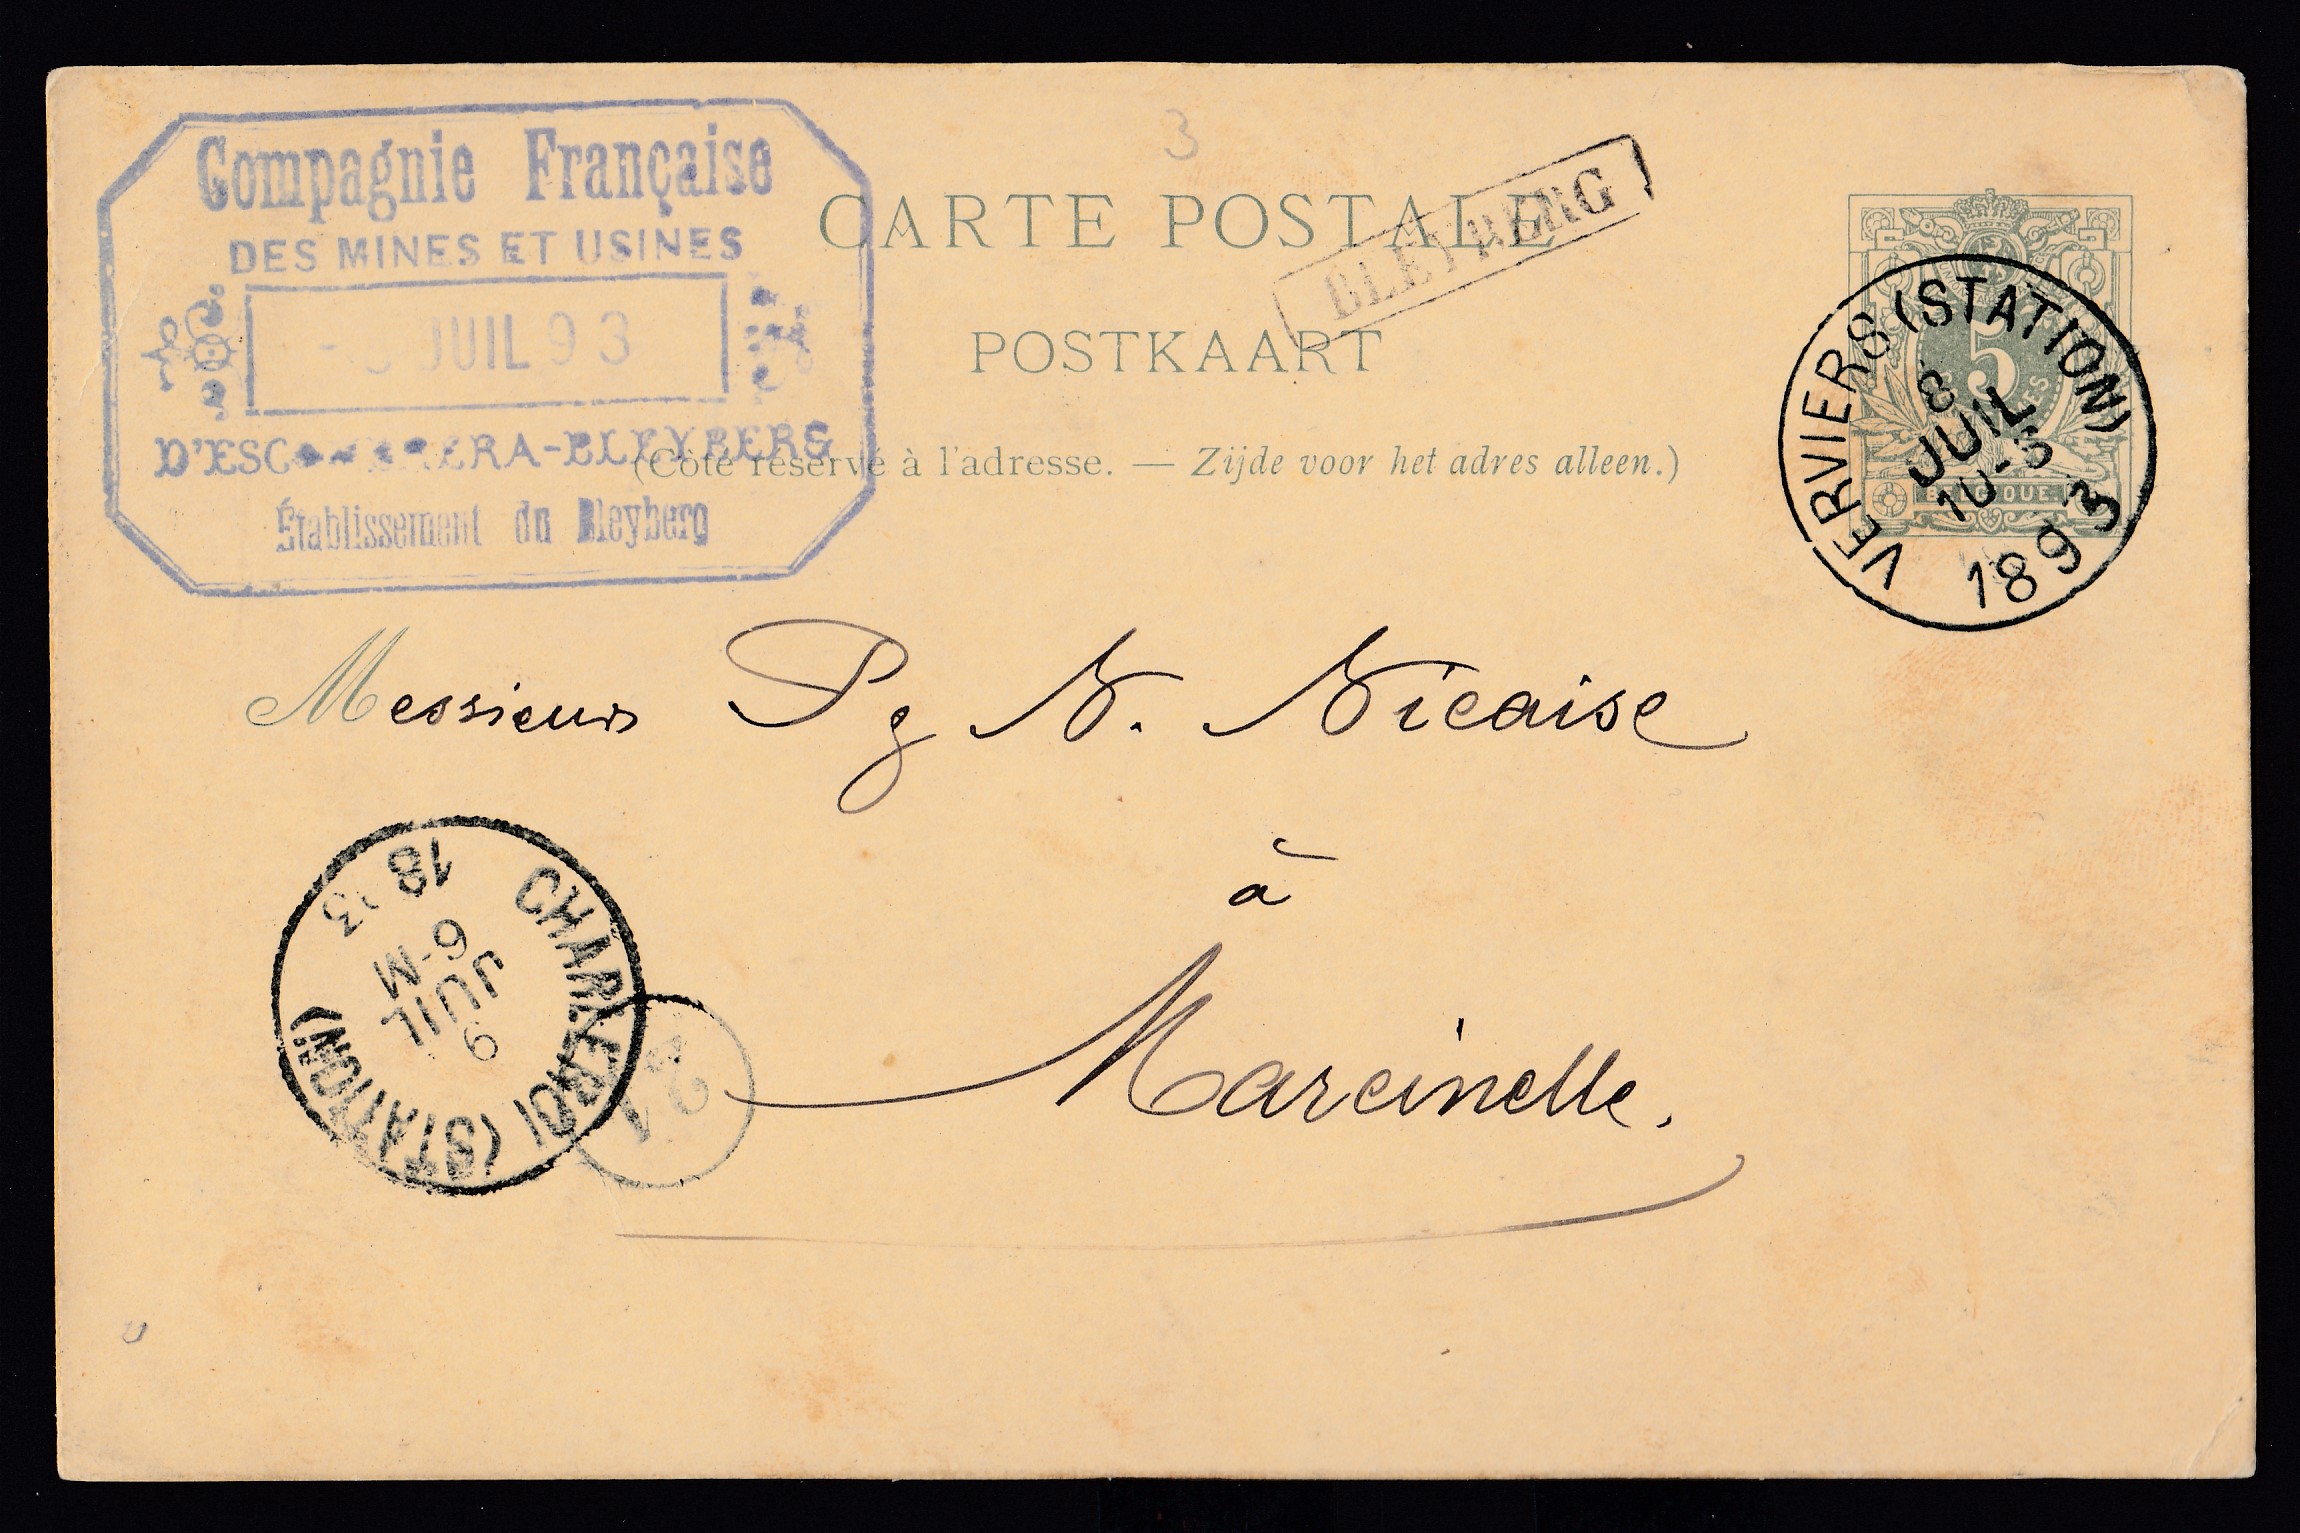 Compagnie Française
DES MINES ET USINES
JUIL 93
D'ESCOMBRERA-BLEYBERG
Établissement du Bleyberg
3
CARTE POSTALE
BLEYBERG
POSTKAART
(Côté réservé à l'adresse. — Zijde voor het adres alleen.)
5
BELGIQUE
VERVIERS (STATION)
8
JUIL
10-S
1893
Messieurs N. Nicaise
à
Marcinelle.
CHARLEROI (STATION)
9
JUIL
6-M
18 3